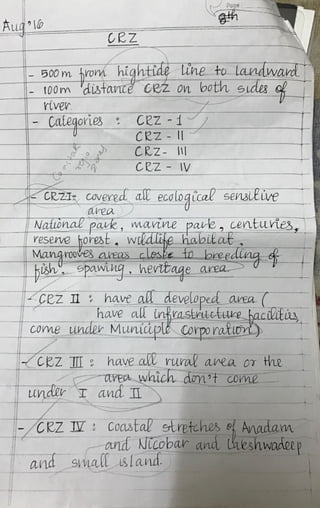 Page
8th
Aug'16
CRZ
- 500m from hightide line to landward
- 100m distance CRZ on both sides of
river
- Categories : CRZ - I
CRZ - II
CRZ - III
CRZ - IV
- CRZI: covered all ecological sensitive
area
National park, marine park, centuries,
reserve forest, wildlife habitat,
Mangrooves areas close to breeding of
fish, spawing, heritage area
- CRZ II : have all developed area (
have all infrastructure facilities,
come under Municiple corporation)
- CRZ III : have all rural area or the
area which don't come
under I and II
- CRZ IV : Coastal stretches of Anadam
and Nicobar and Lakeshwadeep
and small island.